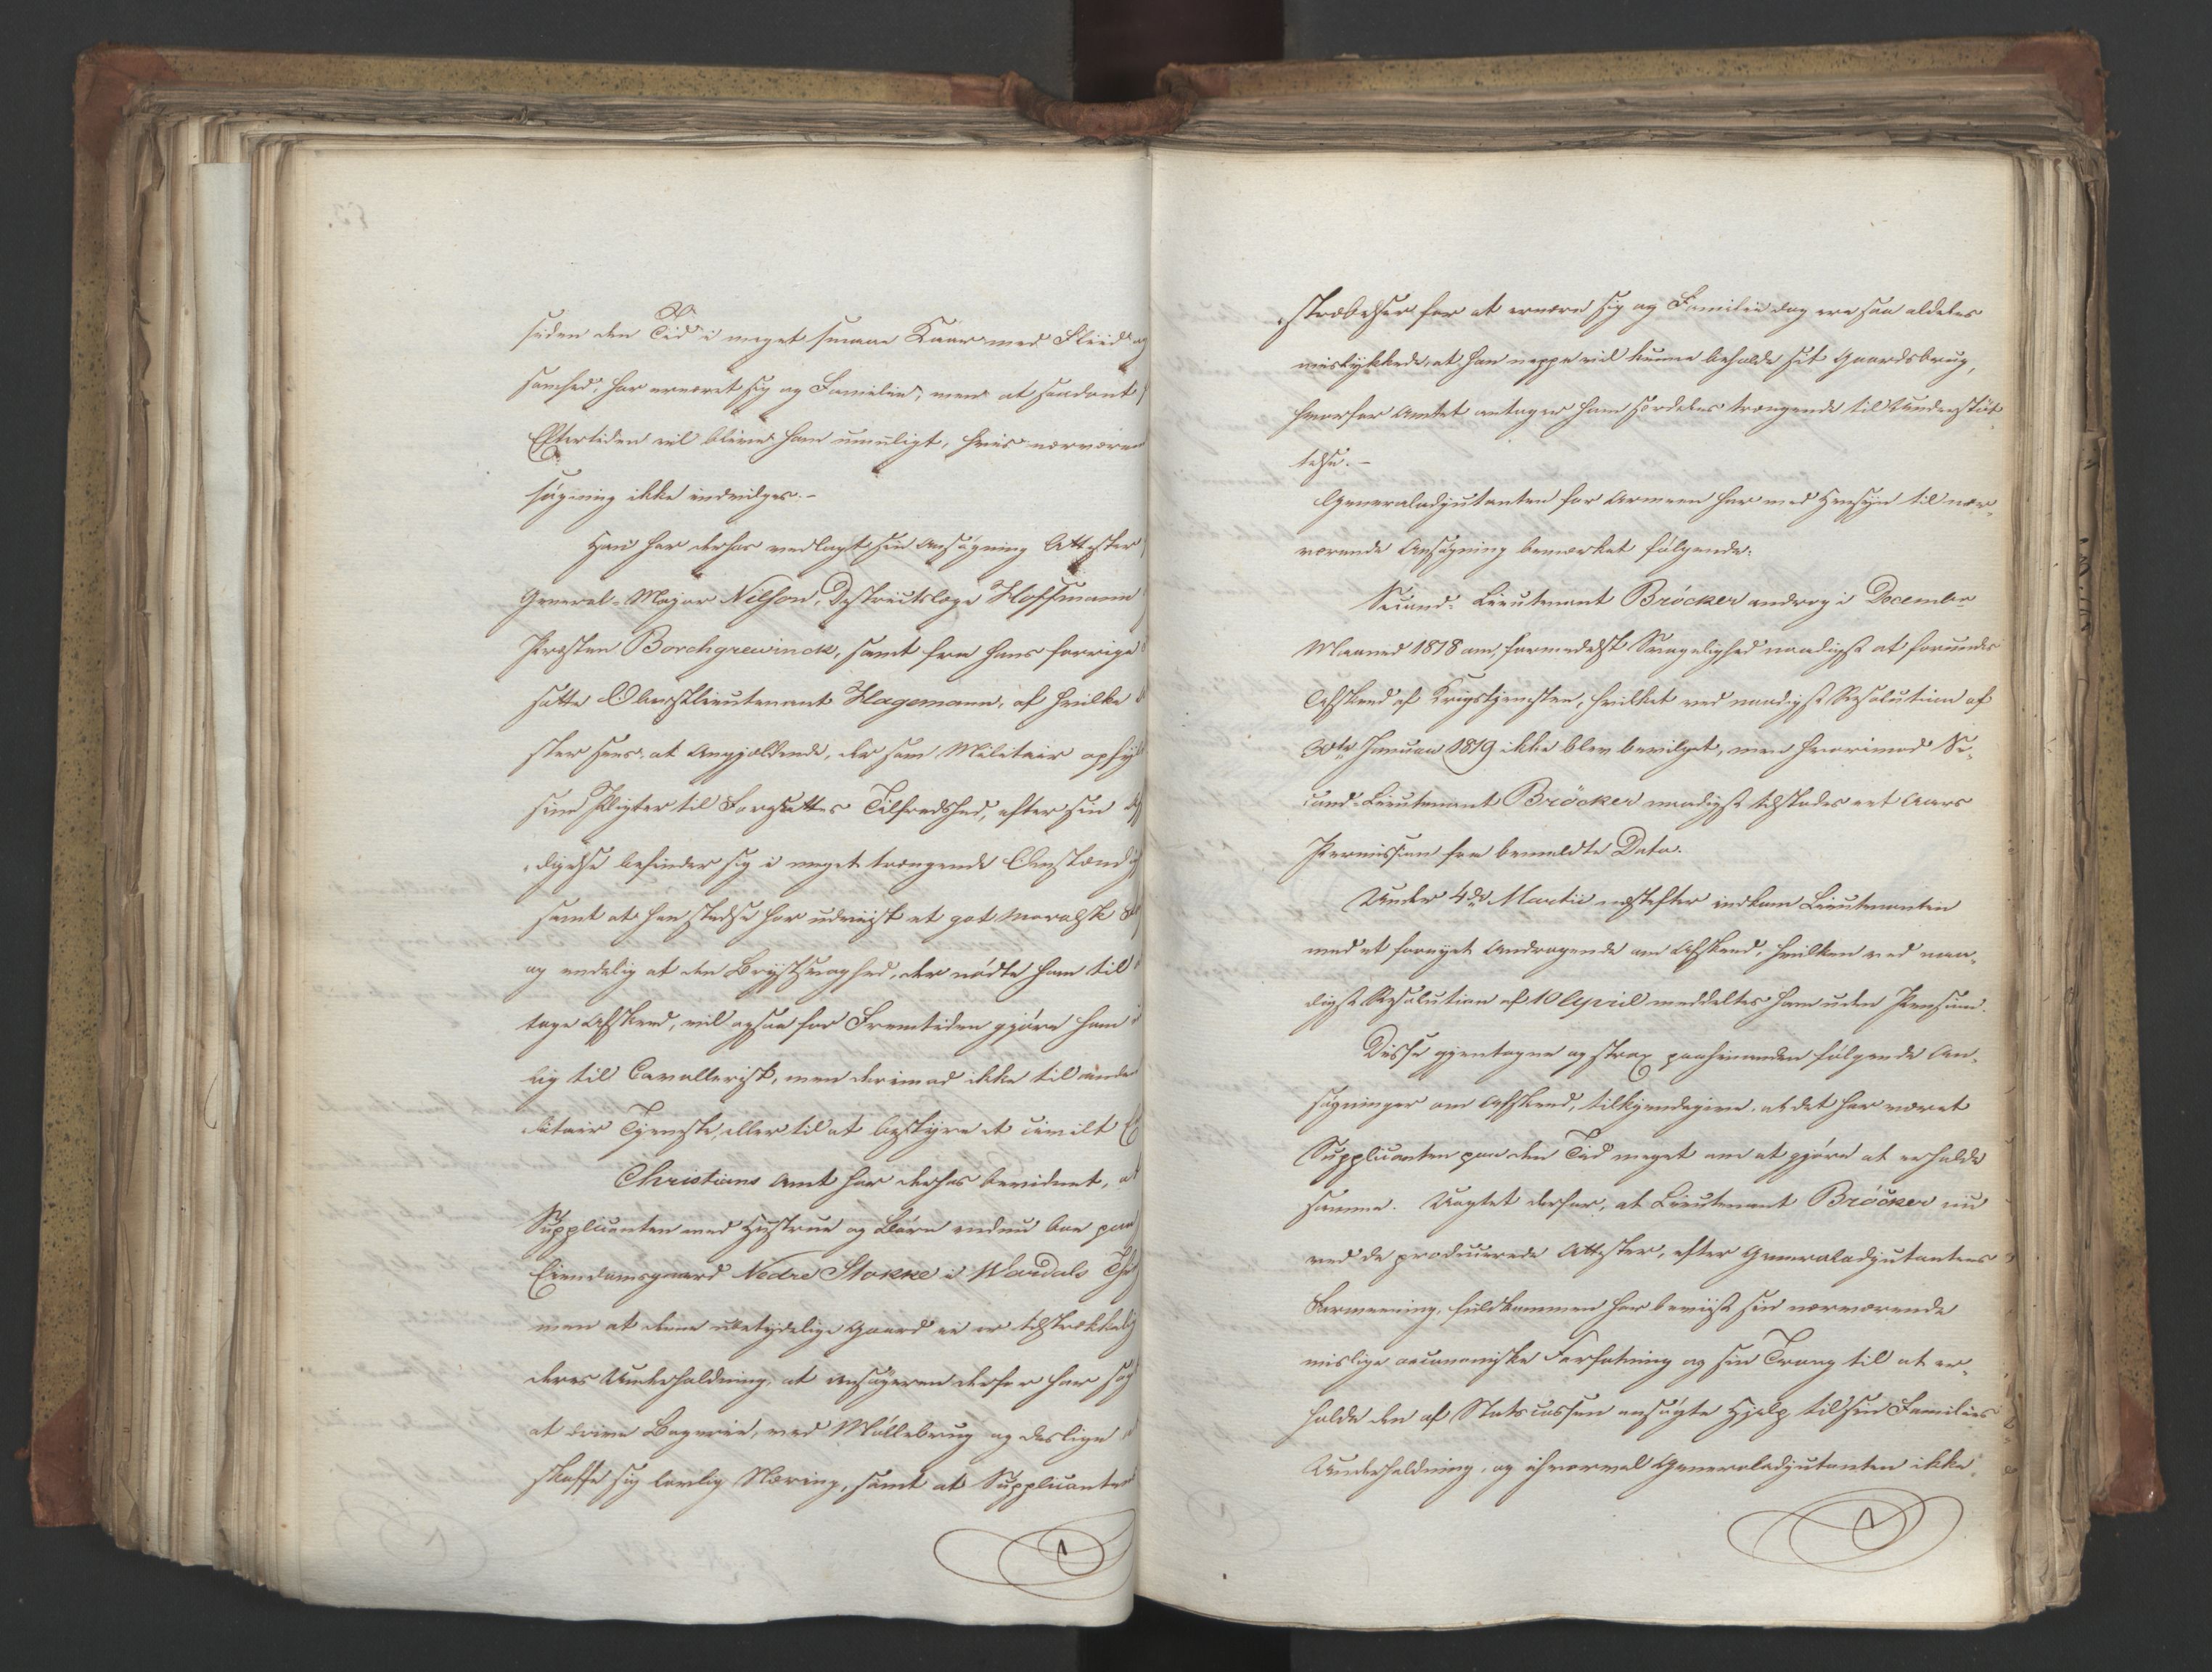 siden den Tid i meget smaae Kaar med Fliid og
somhed, har ernæret sig og Familie; men at saadant
Eftertiden vil blive ham umuligt, hvis nærværen
søgning ikke indvilges.-
Han har derhos vedlagt sin Ansøgning Attester
General-Major Nelson, Districtslæge Hoffmann
Præsten Borchgrewinck, samt fra hans forrige
satte Oberstlieutenant Hagemann, af hvilke
ster sees, at Angjældende, der som Militair opfyl
sine Pligter til Foresattes Tilfredshed, efter sin
digelse befinder sig i meget trængende Omstændig
samt at han stedse har udviist et got moralsk
og endelig at den Brystsvaghed, der nødte ham til
tage Afskeed, vil ogsaa for Fremtiden gjøre ham
lig til Cavallerist, men derimod ikke til anden
litair Tjeneste, eller til at bestyre et civilt
Christians Amt har derhos bevidnet, at
Supplicanten med Hustrue og Børn endnu boe paa
Eiendomsgaard Nedre Stokke i Wardals
men at denne ubetydelige Gaard ei er tilstrækkelig
deres Underholdning, at Ansøgeren derfor har søg
at drive Bagerie, ved Møllebrug og deslige
skaffe sig lovlig Næring, samt at Supplicanten
stræbelser for at ernære sig og Familie dog ere saa aldeles
mislykkede, at han neppe vil kunne beholde sit Gaardsbrug,
hvorfor Amtet antager ham særdeles trængende til Understøt-
telse.-
Generaladjutanten for Armeen har med Hensyn til nær-
værende Ansøgning bemærket følgende:
Second-Lieutenant Bröcker androg i December
Maaned 1818 om, formedelst Svagelighed naadigst at forundes
Afskeed af Krigstjenesten, hvilket ved naadigst Resolution af
30te Januar 1819 ikke blev bevilget, men hvorimod Se-
cond-Lieutenant Bröcker naadigst tilstodes eet Aars
Permission fra bemeldte Dato.
Under 4de Martii næstefter indkom Lieutenanten
med et fornyet Andragende om Afskeed, hvilken ved naa-
digst Resolution af 10 April meddeltes ham uden Pension.
Disse gjentagne og strax paahinanden følgende An-
søgninger om Afskeed, tilkjendegive, at det har været
Supplicanten paa den Tid meget om at gjøre at erholde
samme. Uagtet derfor, at Lieutenant Bröcker nu
ved de producerede Attester, efter Generaladjutantens
Formeening, fuldkommen har beviist sin nærværende
mislige oeconomiske Forfatning og sin Trang til at er-
holde den af Statscassen ansøgte Hjelp til sin Families
Underholdning, og ihvorvel Generaladjutanten ikke